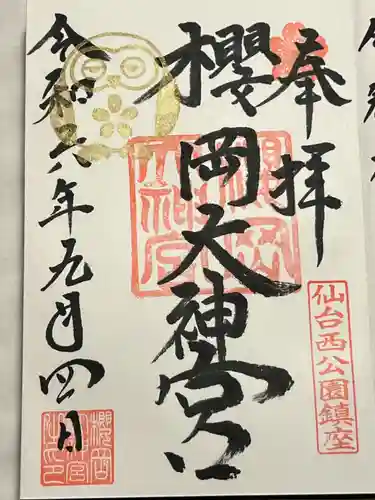 奉拝
櫻岡大神宮
仙台西公園鎮座
令和六年九月四日
櫻岡大神宮